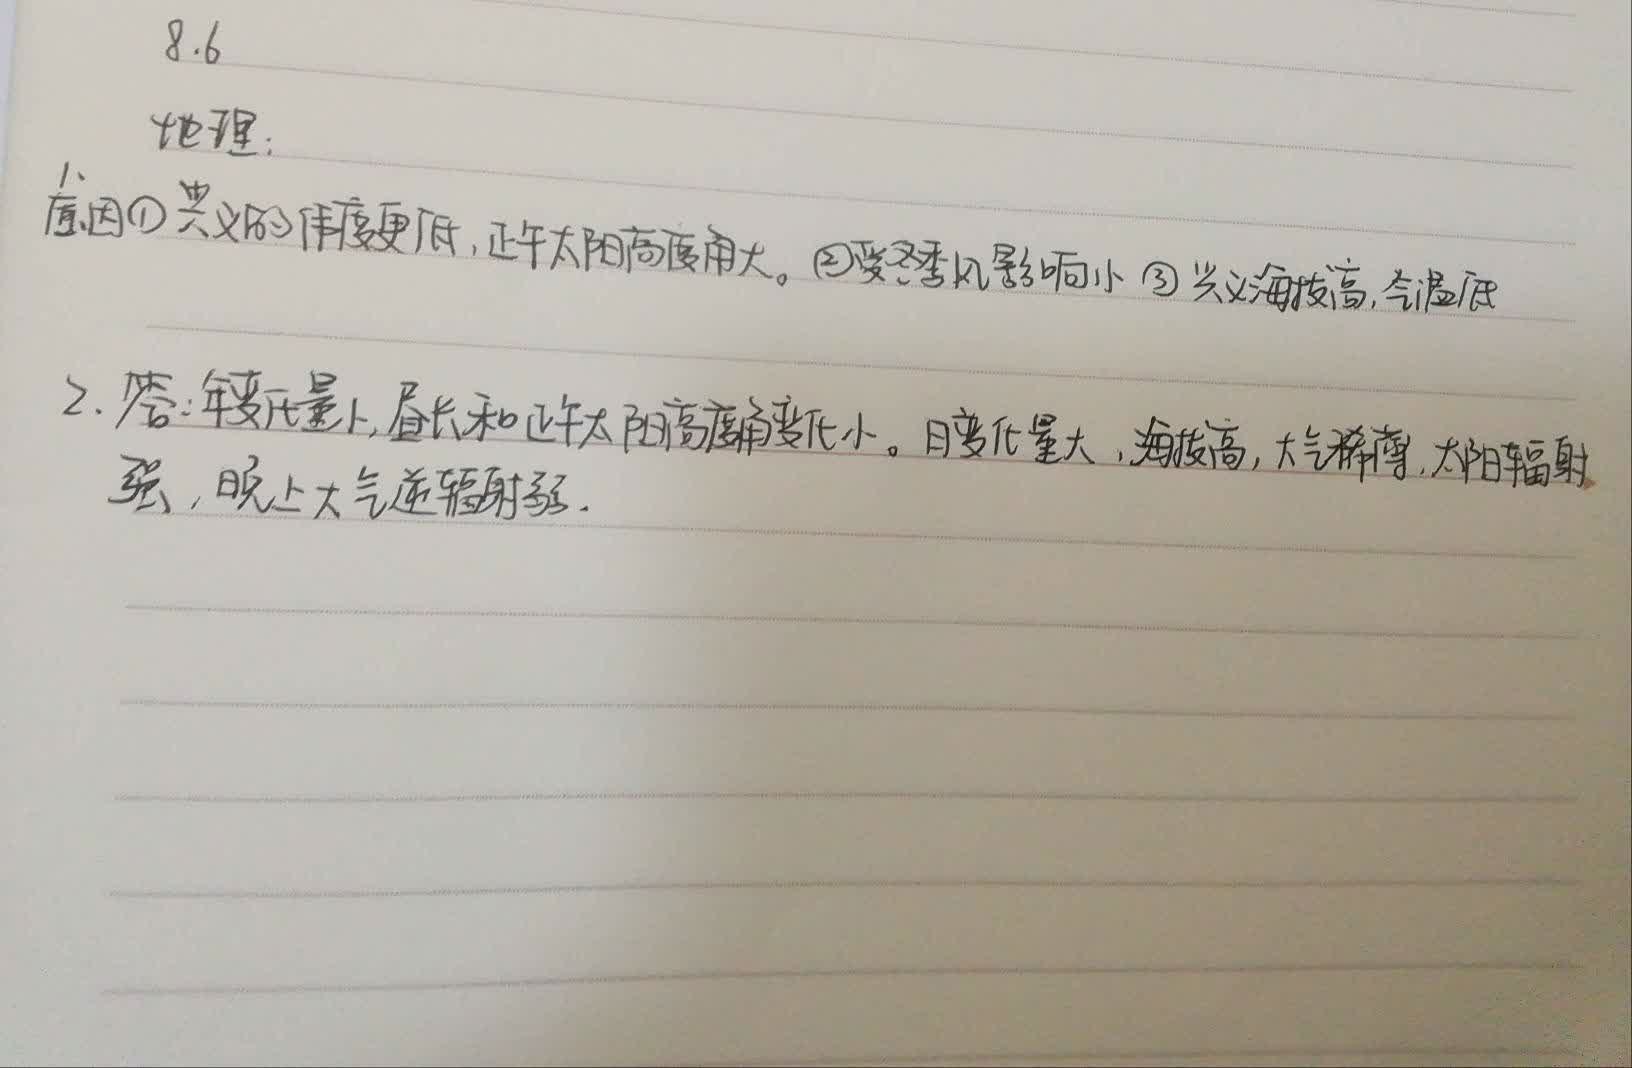 8.6
地理:
1、
原因①兴义的纬度更低,正午太阳高度角大。②受冬季风影响小 ③兴义海拔高,气温低
2. 答:年变化量小,昼长和正午太阳高度角变化小。日变化量大,海拔高,大气稀薄,太阳辐射
强,晚上大气逆辐射弱.